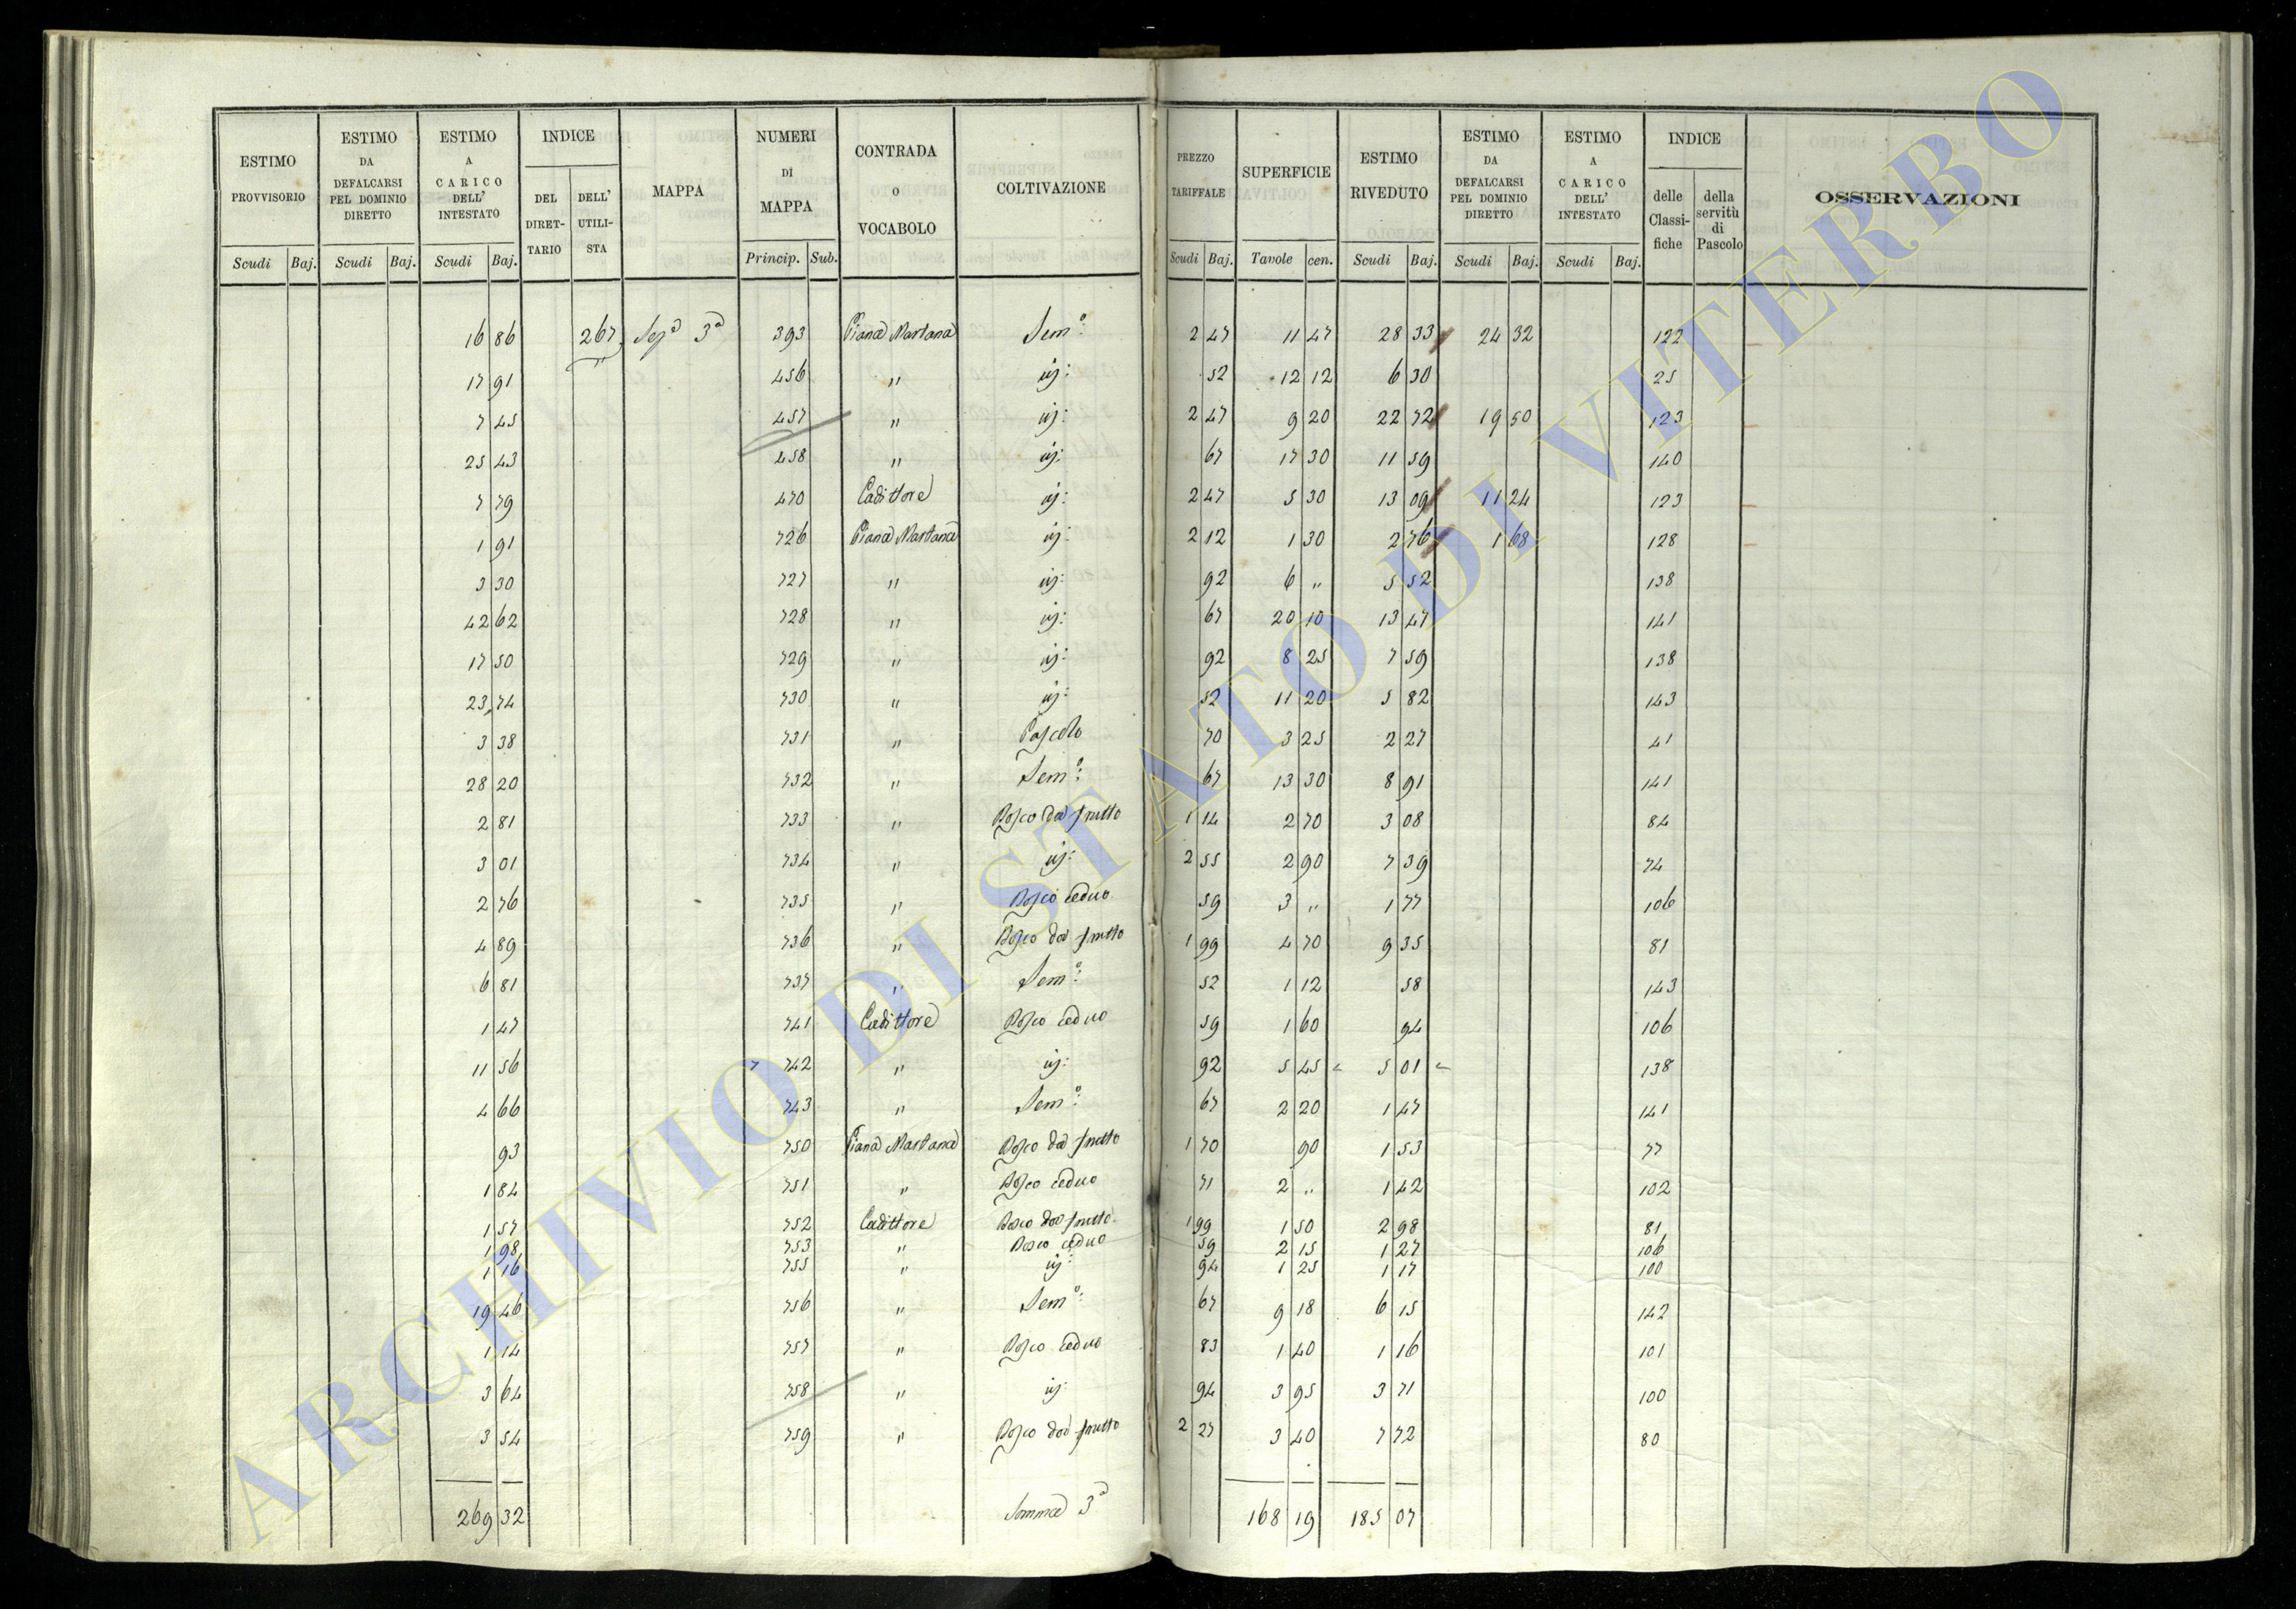 ESTIMO PROVVISORIO | ESTIMO DA DEFALCARSI PEL DOMINIO DIRETTO | ESTIMO A CARICO DELL' INTESTATO | INDICE | MAPPA | NUMERI DI MAPPA | CONTRADA O VOCABOLO | COLTIVAZIONE | PREZZO TARIFFALE | SUPERFICIE | ESTIMO RIVEDUTO | ESTIMO DA DEFALCARSI PEL DOMINIO DIRETTO | ESTIMO A CARICO DELL' INTESTATO | INDICE | OSSERVAZIONI
DEL DIRETTARIO | DELL' UTILISTA | delle Classifiche | della servitù di Pascolo
Scudi | Baj. | Scudi | Baj. | Scudi | Baj. | Princip. | Sub. | Scudi | Baj. | Tavole | cen. | Scudi | Baj. | Scudi | Baj. | Scudi | Baj.
16 86 | 267 | Sez.a 3a | 393 | Piana Martana | Sem.o | 2 47 | 11 47 | 28 33 | 24 32 | 122
17 91 | 456 | " | id: | 52 | 12 12 | 6 30 | 25
7 45 | 457 | " | id: | 2 47 | 9 20 | 22 72 | 19 50 | 123
25 43 | 458 | " | id: | 67 | 17 30 | 11 59 | 140
7 79 | 470 | Cadittore | id: | 2 47 | 5 30 | 13 09 | 11 24 | 123
1 91 | 726 | Piana Martana | id: | 2 12 | 1 30 | 2 76 | 1 68 | 128
3 30 | 727 | " | id: | 92 | 6 " | 5 52 | 138
42 62 | 728 | " | id: | 67 | 20 10 | 13 47 | 141
17 50 | 729 | " | id: | 92 | 8 25 | 7 59 | 138
23 74 | 730 | " | id: | 52 | 11 20 | 5 82 | 143
3 38 | 731 | " | Pascolo | 70 | 3 25 | 2 27 | 41
28 20 | 732 | " | Sem.o | 67 | 13 30 | 8 91 | 141
2 81 | 733 | " | Bosco da frutto | 1 14 | 2 70 | 3 08 | 84
3 01 | 734 | " | id: | 2 55 | 2 90 | 7 39 | 74
2 76 | 735 | " | Bosco ceduo | 59 | 3 " | 1 77 | 106
4 89 | 736 | " | Bosco da frutto | 1 99 | 4 70 | 9 35 | 81
6 81 | 737 | " | Sem.o | 52 | 1 12 | 58 | 143
1 47 | 741 | Cadittore | Bosco ceduo | 59 | 1 60 | 94 | 106
11 56 | 742 | " | id: | 92 | 5 45 | 5 01 | 138
4 66 | 743 | " | Sem.o | 67 | 2 20 | 1 47 | 141
93 | 750 | Piana Martana | Bosco da frutto | 1 70 | 90 | 1 53 | 77
1 84 | 751 | " | Bosco ceduo | 71 | 2 " | 1 42 | 102
1 57 | 752 | Cadittore | Bosco da frutto | 1 99 | 1 50 | 2 98 | 81
1 98 | 753 | " | Bosco ceduo | 59 | 2 15 | 1 27 | 106
1 16 | 755 | " | id: | 94 | 1 25 | 1 17 | 100
19 46 | 756 | " | Sem.o | 67 | 9 18 | 6 15 | 142
1 14 | 757 | " | Bosco ceduo | 83 | 1 40 | 1 16 | 101
3 64 | 758 | " | id: | 94 | 3 95 | 3 71 | 100
3 54 | 759 | " | Bosco da frutto | 2 27 | 3 40 | 7 72 | 80
269 32 | Somma 3a | 168 19 | 185 07
ARCHIVIO DI STATO DI VITERBO